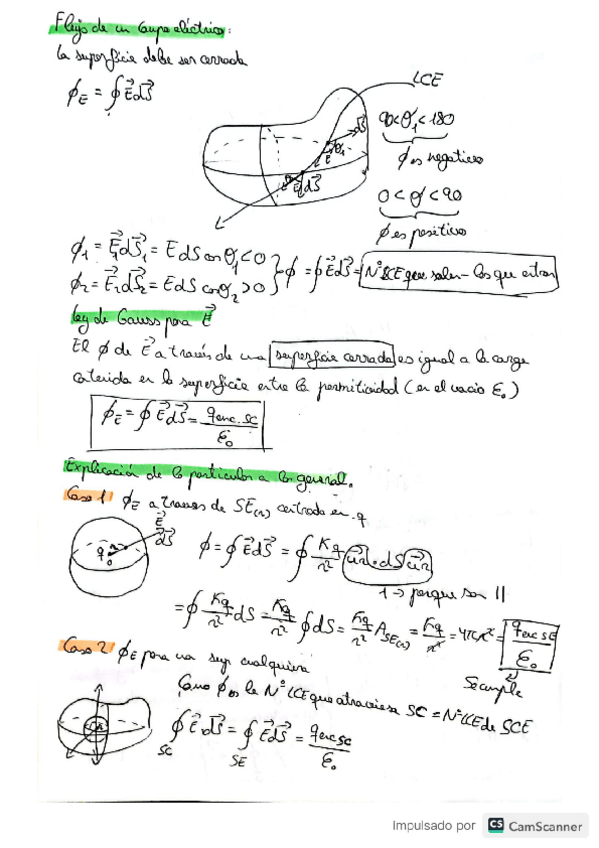 Flujo de un campo eléctrico:
la superficie debe ser cerrada
ϕ_E = ∮E⃗dS⃗
LCE
90<θ₁<180
ϕ es negativo
0<θ<90
ϕ es positivo
ϕ₁ = E⃗₁dS⃗₁ = E dS cosθ₁<0
ϕ₂ = E⃗₂dS⃗₂ = E dS cosθ₂>0 } ϕ = ∮E⃗dS⃗ = Nº LCE que salen - los que entran
Ley de Gauss para E⃗
El ϕ de E⃗ a través de una superficie cerrada es igual a la carga
contenida en la superficie entre la permitividad (en el vacío ε₀)
ϕ_E = ∮E⃗dS⃗ = q enc. SC / ε₀
Explicación de lo particular a lo general.
Caso 1 ϕ_E a traves de SE(r) centrada en q
ϕ = ∮E⃗dS⃗ = ∮ Kq/r² u⃗r · dS u⃗r
1 → porque son ||
= ∮ Kq/r² dS = Kq/r² ∮dS = Kq/r² A_SE(r) = Kq/r² = 4πr² = q enc SE / ε₀
Se cumple
Caso 2 ϕ_E para una sup cualquiera
Como ϕ es la Nº LCE que atraviesa SC = Nº LCE de SCE
∮E⃗·dS⃗ = ∮E⃗dS⃗ = q enc SC / ε₀
SC SE
Impulsado por CS CamScanner